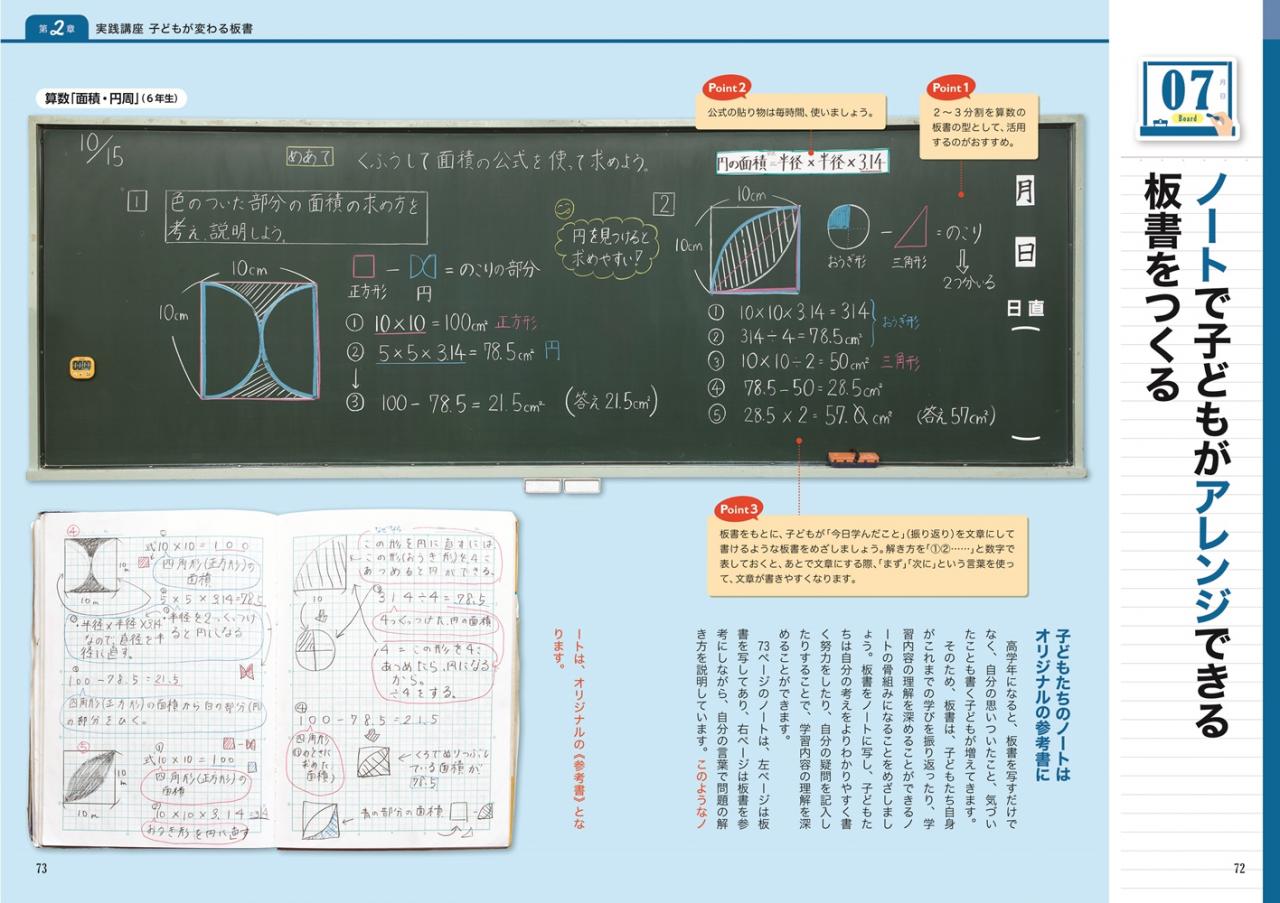 第2章 実践講座 子どもが変わる板書
07
月
日
Board
ノートで子どもがアレンジできる
板書をつくる
算数「面積・円周」(6年生)
Point2
公式の貼り物は毎時間、使いましょう。
Point1
2〜3分割を算数の
板書の型として、活用
するのがおすすめ。
10/15
めあて くふうして面積の公式を使って求めよう。
円の面積=半径×半径×3.14
1
色のついた部分の面積の求め方を
考え、説明しよう。
10cm
10cm
□ − = のこりの部分
正方形 円
① 10×10=100cm² 正方形
② 5×5×3.14=78.5cm² 円
↓
③ 100−78.5=21.5cm² (答え21.5cm²)
円を見つけると
求めやすい?
2
10cm
10cm
− = のこり
おうぎ形 三角形
⇓
2つ分いる
① 10×10×3.14=314
② 314÷4=78.5cm² おうぎ形
③ 10×10÷2=50cm² 三角形
④ 78.5−50=28.5cm²
⑤ 28.5×2=57.0cm² (答え57cm²)
月
日
日直
Point3
板書をもとに、子どもが「今日学んだこと」(振り返り)を文章にして
書けるような板書をめざしましょう。解き方を「①②……」と数字で
表しておくと、あとで文章にする際、「まず」「次に」という言葉を使っ
て、文章が書きやすくなります。
子どもたちのノートは
オリジナルの参考書に
高学年になると、板書を写すだけで
なく、自分の思いついたこと、気づい
たことも書く子どもが増えてきます。
そのため、板書は、子どもたち自身
がこれまでの学びを振り返ったり、学
習内容の理解を深めることができるノ
ートの骨組みになることをめざしまし
ょう。板書をノートに写し、子どもた
ちは自分の考えをよりわかりやすく書
く努力をしたり、自分の疑問を記入し
たりすることで、学習内容の理解を深
めることができます。
73ページのノートは、左ページは板
書を写してあり、右ページは板書を参
考にしながら、自分の言葉で問題の解
き方を説明しています。このようなノ
ートは、オリジナルの《参考書》とな
ります。
④
式10×10=100
四角形(正方形)の
面積
10m
10m
5×5×3.14=78.5
半径×半径×3.14
半径を2つくっつけ
ると円になる
なので、直径を半
径に直す。
100−78.5=21.5
四角形(正方形)の面積から白の部分(円)
の部分をひく。
⑤
式10×10=100
四角形(正方形)の
面積
10m
10m
10×10×3.14=314
おうぎ形を円に直す
なぜなら
この形を円に直すには、
この形(おうぎ形)を4こ
あつめると円ができる。
10
314÷4=78.5
4つくっつけた、円の面積
4=この形を4こ
あつめたら、円になる
から。
÷4をする。
④
100−78.5=21.5
四角形
のときに
求めた
面積
←くろでぬりつぶし
ている面積が
78.5
←青の部分の面積
73
72